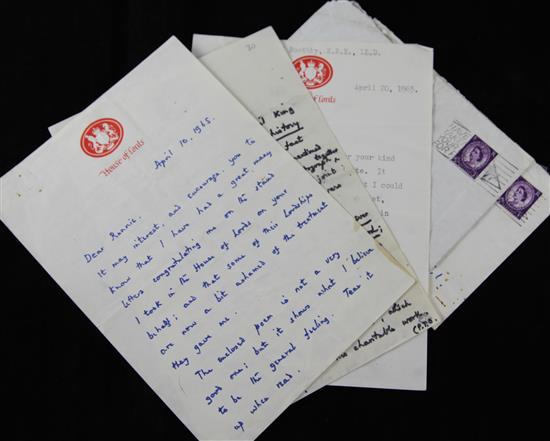 House of Lords
April 10. 1965
Dear Ronnie.
It may interest, and encourage, you to
know that I have had a great many
letters congratulating me on the stand
I took in the House of Lords on your
behalf; and that some of their Lordships
are now a bit ashamed of the treatment
they gave me.
The enclosed poem is not a very
good one; but it shows what I believe
to be the general feeling. Tear it
up when read.
30
King
history
feat
together
which
charitable work.
Boothby, K.B.E., LL.D.
of Lords
April 20, 1965.
your kind
It
I could
in